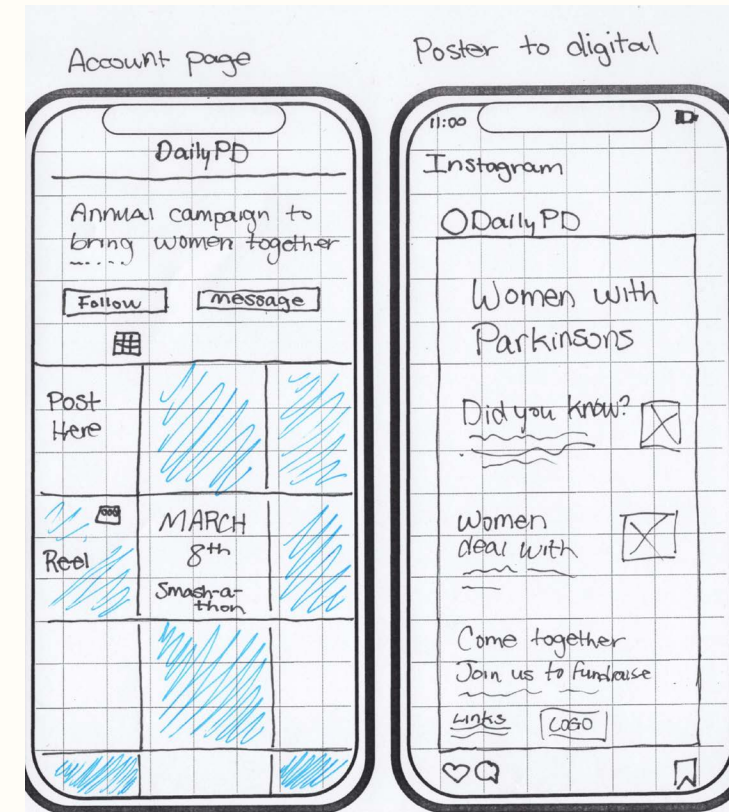 Account page
DailyPD
Annual campaign to
bring women together
Follow
message
Post
Here
Reel
MARCH
8th
Smash-a-
thon
Poster to digital
11:00
Instagram
DailyPD
Women with
Parkinsons
Did you know?
Women
deal with
Come together
Join us to fundraise
Links
LOGO